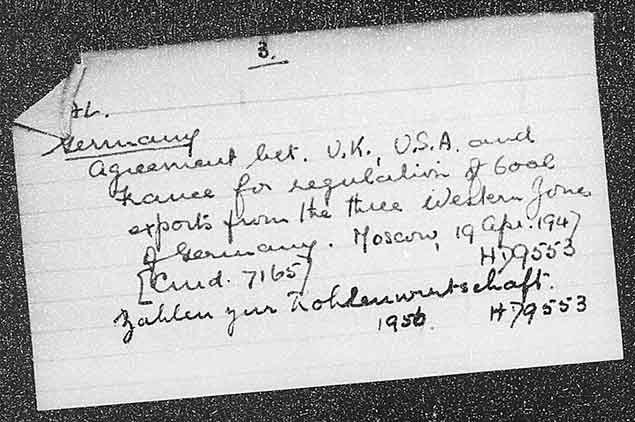 3.
HL.
Germany
Agreement bet. U.K., U.S.A. and
France for regulation of Coal
exports from the three Western Zones
of Germany. Moscow, 19 Apr. 1947
[Cmd. 7165] HD9553
Zahlen zur Kohlenwirtschaft.
1956. HD9553